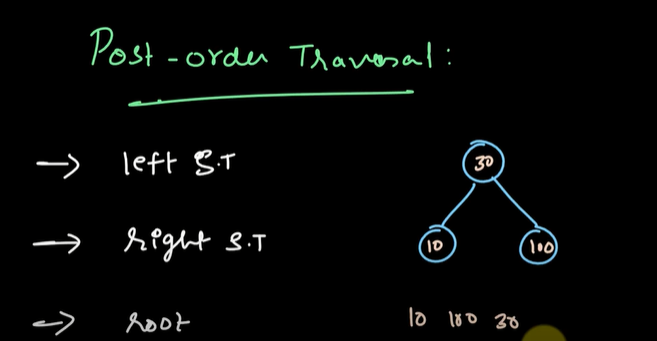 Post-order Traversal:
→ left S.T
→ right S.T
→ root
30
10 100
10 100 30